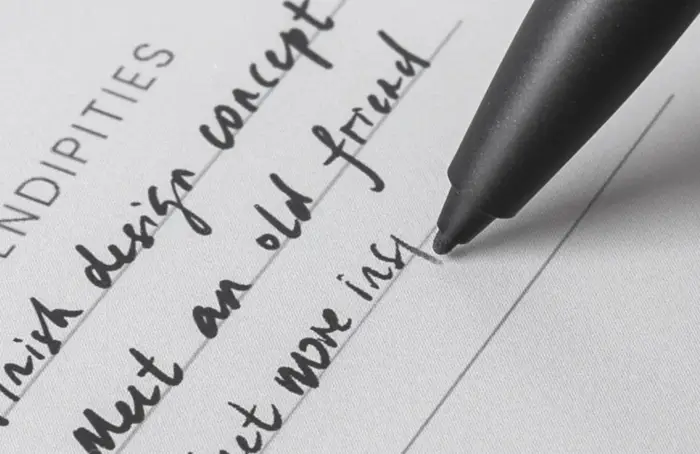 ENDIPITIES
inish design concept
Meet an old friend
et more ins